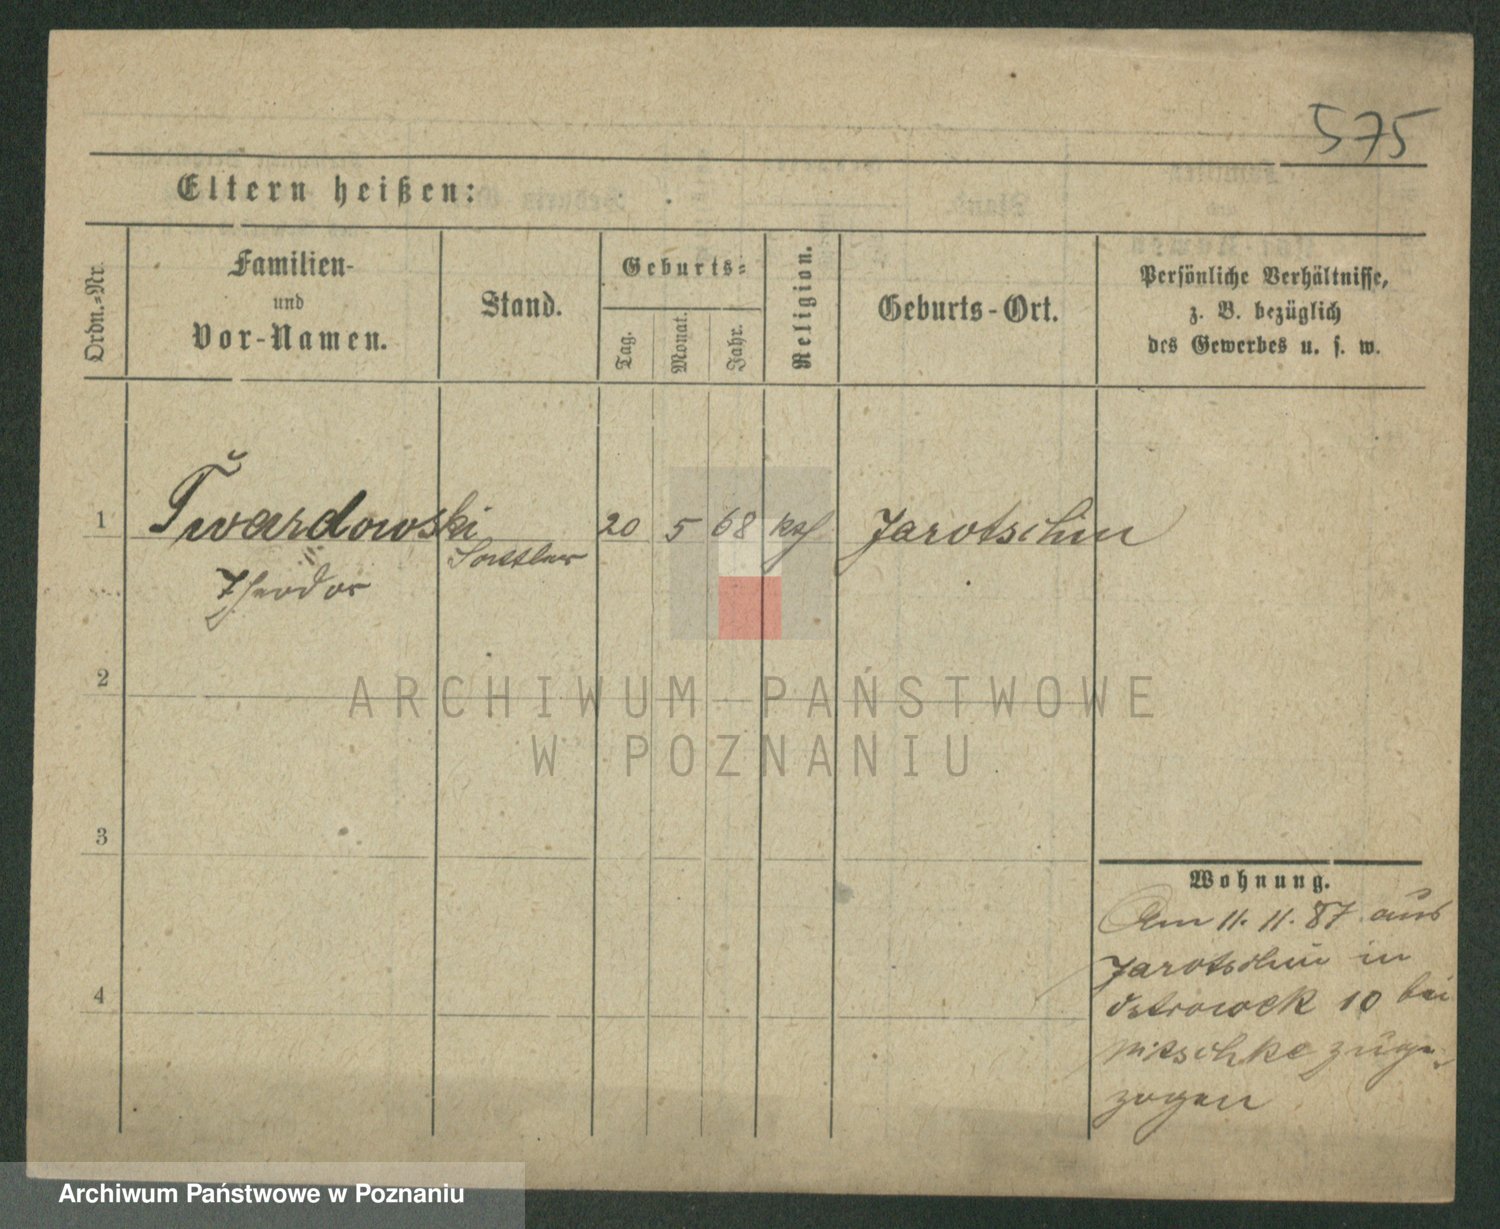 575
Eltern heißen:
Ordn.=Nr.
Familien-
und
Vor-Namen.
Stand.
Geburts=
Tag.
Monat.
Jahr.
Religion.
Geburts-Ort.
Persönliche Verhältnisse,
z. B. bezüglich
des Gewerbes u. s. w.
1 Twardowski 20 5 68 kath Jarotschin
Theodor
2
ARCHIWUM PAŃSTWOWE
W POZNANIU
3
Wohnung.
Am 11. 11. 87. aus
Jarotschin in
4
Ostrowek 10 bei
Nitschke zuge-
zogen
Archiwum Państwowe w Poznaniu